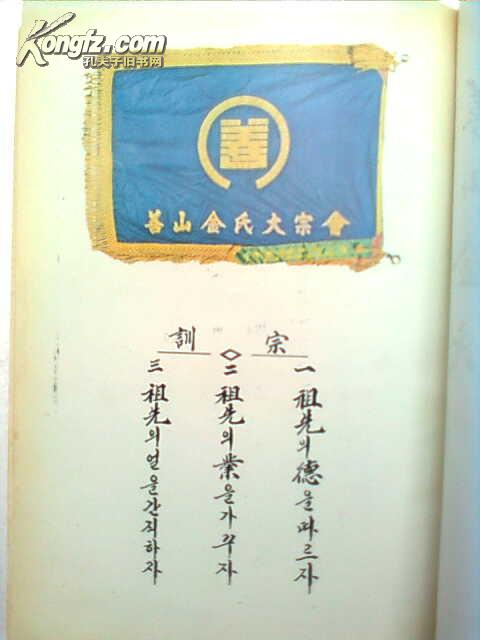 Kongfz.com
孔夫子旧书网
善
善山金氏大宗會
宗訓
一 祖先의 德을 따르자
二 祖先의 業을 가꾸자
三 祖先의 얼을 간직하자